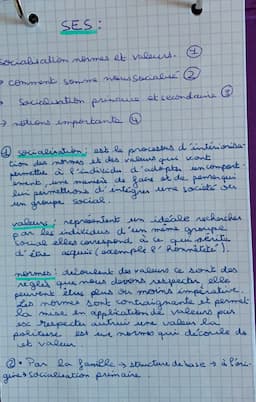 SES :
socialisation normes et valeurs. ①
→ comment somme nous socialisé ②
→ socialisation primaire et secondaire ③
→ notions importante ④
① socialisation : est le processus d'intériorisa-
tion des normes et des valeurs qui vont
permettre à l'individu d'adopter un comport-
ement, une manière de faire et de penser qui
lui permettrons d'intégrer une société ou
un groupe social.
valeurs : représentent un idéale rechercher
par les individus d'un même groupe
social elles correspond à ce qui mérite
d'être acquis (exemple l'honnêteté).
normes : découlent des valeurs ce sont des
règles que nous devons respecter, elle
peuvent être plus ou moins impérative.
Les normes sont contraignante et permet
la mise en application de valeurs par
ex respecter autrui une valeur la
politesse est une normes qui découle de
cet valeur.
②. Par la famille → structure de base → à l'ori-
gine socialisation primaire